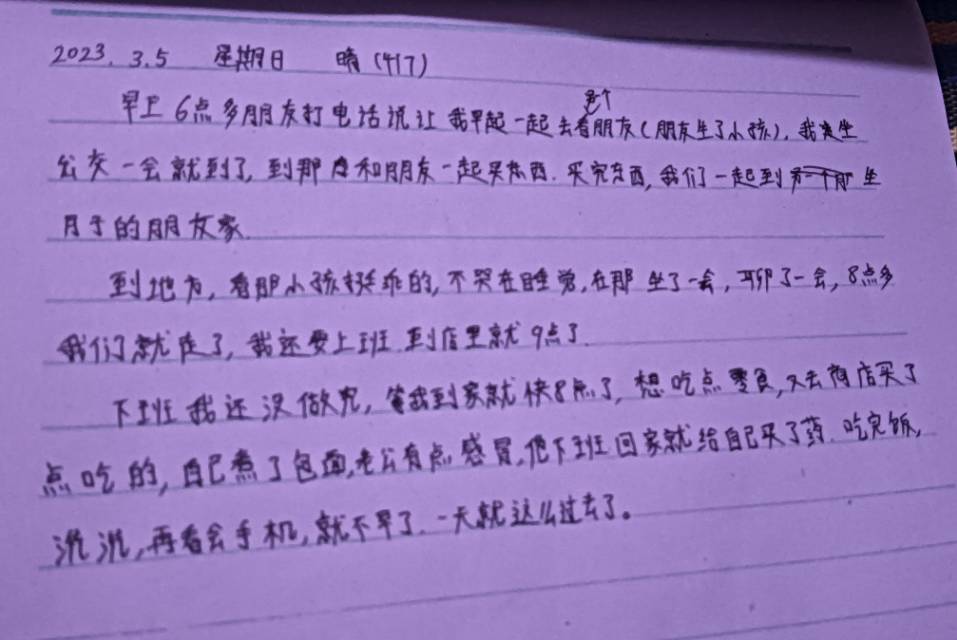 2023.3.5 星期日 晴(417)
早上6点多朋友打电话说让我早起一起去看那个朋友(朋友生了小孩),我坐
公交一会就到了,到那后和朋友一起买东西.买完东西,我们一起到 坐
月子的朋友家.
到地方,看那小孩挺乖的,不哭在睡觉,在那坐了一会,聊了一会,8点多
我们就走了,我还要上班.到店里就9点了.
下班我还没做完,等我到家就快8点了,想吃点零食,又去商店买了
点吃的,自己煮了包面,老公有点感冒,他下班回家就给自己买了药.吃完饭,
洗洗,再看会手机,就不早了.一天就这么过去了。